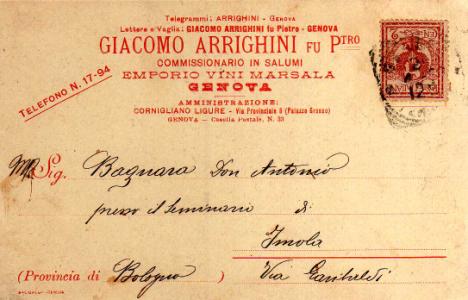 Telegrammi: ARRIGHINI - GENOVA
Lettere e Vaglia: GIACOMO ARRIGHINI fu Pietro - GENOVA
GIACOMO ARRIGHINI FU PTRO
COMMISSIONARIO IN SALUMI
EMPORIO VINI MARSALA
GENOVA
TELEFONO N. 17-94
AMMINISTRAZIONE:
CORNIGLIANO LIGURE - Via Provinciale 8 (Palazzo Grasso)
GENOVA - Casella Postale, N. 33
Sig. Bagnara Don Antonio
presso il Seminario di
Imola
(Provincia di Bologna) Via Garibaldi